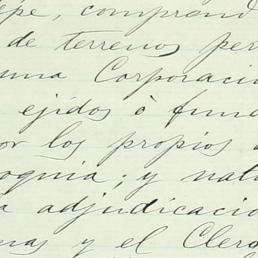 epe, comprend
de terrenos per
una Corporació
ejidos ò fun
or los propios
oquia; y nat
a adjudicacio
nas y el Clero